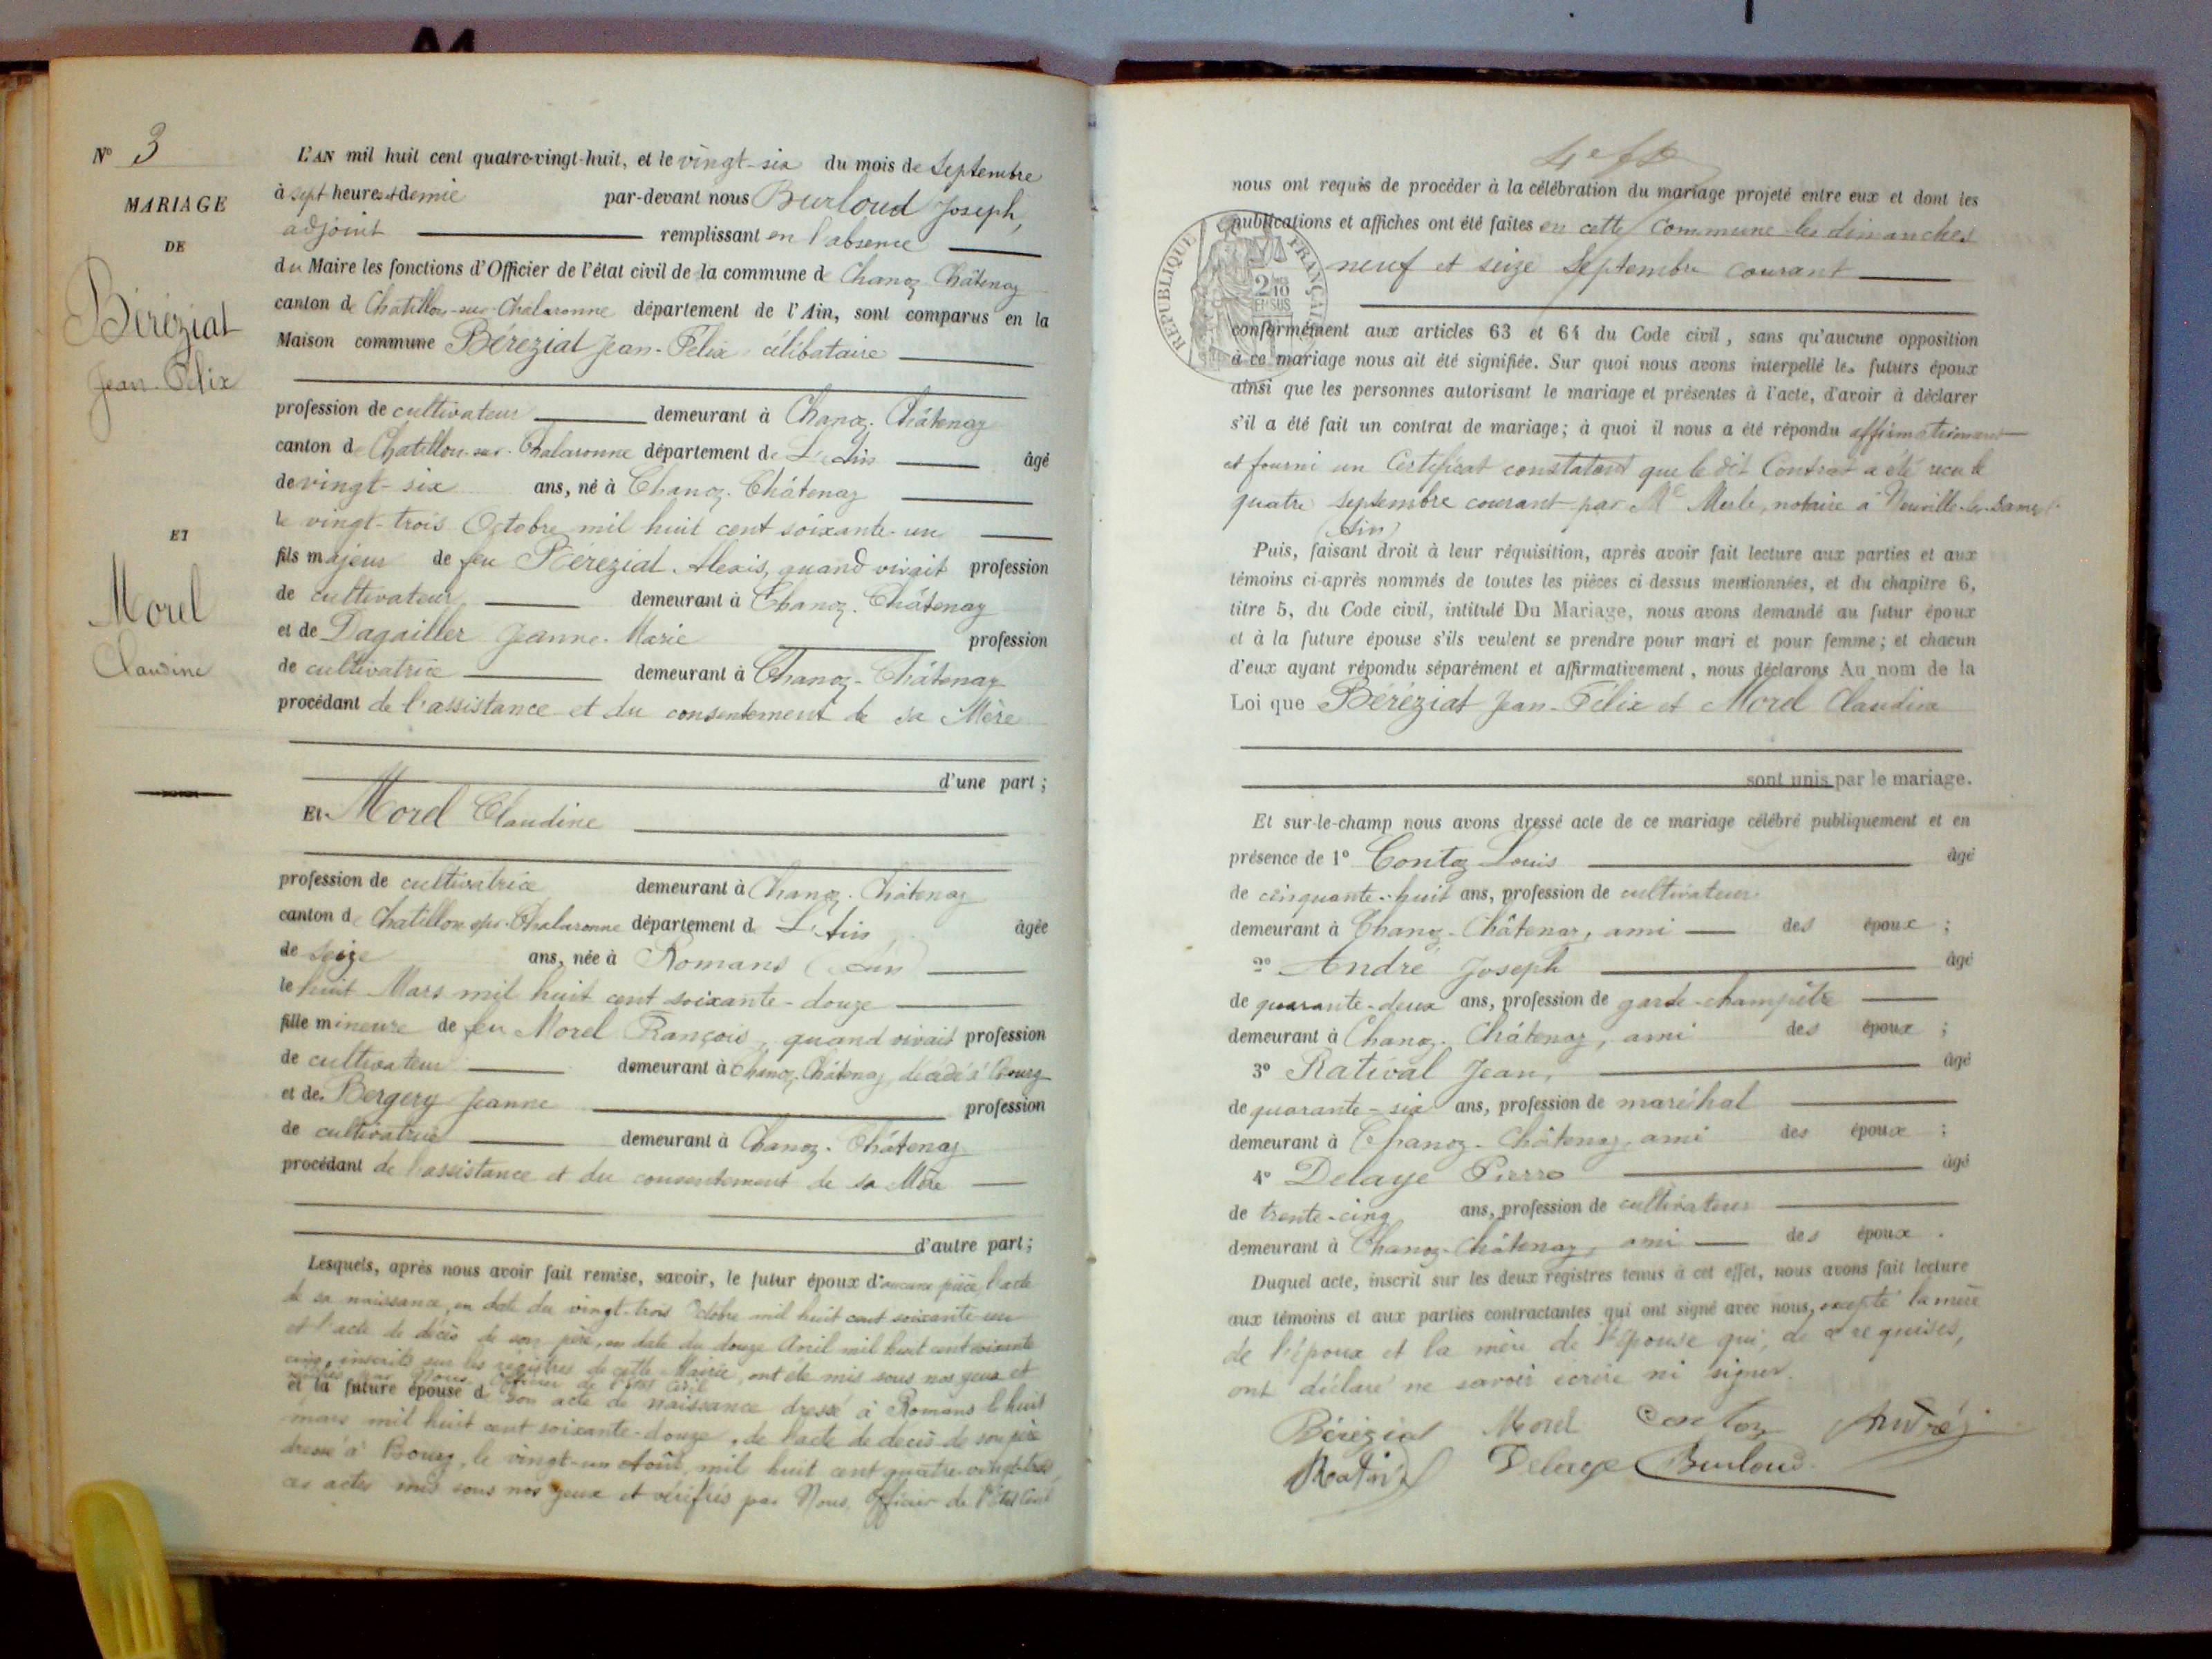 A4
N° 3
MARIAGE
DE
Béréziat
Jean-Félix
ET
Morel
Claudine
L'AN mil huit cent quatre-vingt-huit, et le vingt-six du mois de Septembre
à sept heures et demie par-devant nous Burloud Joseph,
adjoint remplissant en l'absence
du Maire les fonctions d'Officier de l'état civil de la commune d Chanoz-Châtenay
canton de Chatillon-sur-Chalaronne département de l'Ain, sont comparus en la
Maison commune Béréziat Jean-Félix célibataire
profession de cultivateur demeurant à Chanoz-Châtenay
canton de Chatillon-sur-Chalaronne département de L'Ain âgé
de vingt-six ans, né à Chanoz-Châtenay
le vingt-trois Octobre mil huit cent soixante-un
fils majeur de feu Béréziat Alexis, quand vivait profession
de cultivateur demeurant à Chanoz-Châtenay
et de Dagailler Jeanne-Marie profession
de cultivatrice demeurant à Chanoz-Châtenay
procédant de l'assistance et du consentement de sa Mère
d'une part;
Et Morel Claudine
profession de cultivatrice demeurant à Chanoz-Châtenay
canton de Chatillon-sur-Chalaronne département d L'Ain âgée
de seize ans, née à Romans (Ain)
le huit Mars mil huit cent soixante-douze
fille mineure de feu Morel François, quand vivait profession
de cultivateur demeurant à Chanoz-Châtenay, décédé à Bourg
et de Bergery Jeanne profession
de cultivatrice demeurant à Chanoz-Châtenay
procédant de l'assistance et du consentement de sa Mère
d'autre part;
Lesquels, après nous avoir fait remise, savoir, le futur époux d'aucune pièce, l'acte
de sa naissance, en date du vingt-trois Octobre mil huit cent soixante un
et l'acte de décès de son père, en date du douze Avril mil huit cent soixante
cinq, inscrits sur les registres de cette Mairie, ont été mis sous nos yeux et
vérifiés par Nous Officier de l'état Civil
et la future épouse d son acte de naissance dressé à Romans le huit
mars mil huit cent soixante-douze, de l'acte de décès de son père
dressé à Bourg, le vingt-un Août, mil huit cent quatre-vingt-trois
ces actes mis sous nos yeux et vérifiés par Nous, Officier de l'État Civil
nous ont requis de procéder à la célébration du mariage projeté entre eux et dont les
publications et affiches ont été faites en cette Commune les dimanches
neuf et seize Septembre courant
RÉPUBLIQUE FRANÇAISE
2/10
EN SUS
conformément aux articles 63 et 64 du Code civil, sans qu'aucune opposition
à ce mariage nous ait été signifiée. Sur quoi nous avons interpellé les futurs époux
ainsi que les personnes autorisant le mariage et présentes à l'acte, d'avoir à déclarer
s'il a été fait un contrat de mariage; à quoi il nous a été répondu affirmativement
et fourni un Certificat constatant que le dit Contrat a été reçu le
quatre septembre courant par Me Merle, notaire à Neuville-les-Dames
(Ain)
Puis, faisant droit à leur réquisition, après avoir fait lecture aux parties et aux
témoins ci-après nommés de toutes les pièces ci dessus mentionnées, et du chapitre 6,
titre 5, du Code civil, intitulé Du Mariage, nous avons demandé au futur époux
et à la future épouse s'ils veulent se prendre pour mari et pour femme; et chacun
d'eux ayant répondu séparément et affirmativement, nous déclarons Au nom de la
Loi que Béréziat Jean-Félix et Morel Claudine
sont unis par le mariage.
Et sur-le-champ nous avons dressé acte de ce mariage célébré publiquement et en
présence de 1° Contoz Louis âgé
de cinquante-huit ans, profession de cultivateur
demeurant à Chanoz-Châtenay, ami des époux;
2° André Joseph âgé
de quarante-deux ans, profession de garde-champêtre
demeurant à Chanoz-Châtenay, ami des époux;
3° Ratival Jean, âgé
de quarante-six ans, profession de maréchal
demeurant à Chanoz-Châtenay, ami des époux;
4° Delaye Pierre âgé
de trente-cinq ans, profession de cultivateur
demeurant à Chanoz-Châtenay, ami des époux.
Duquel acte, inscrit sur les deux registres tenus à cet effet, nous avons fait lecture
aux témoins et aux parties contractantes qui ont signé avec nous, excepté la mère
de l'époux et la mère de l'épouse qui, de ce requises,
ont déclaré ne savoir écrire ni signer.
Béréziat Morel Contoz André J
Delaye Burloud